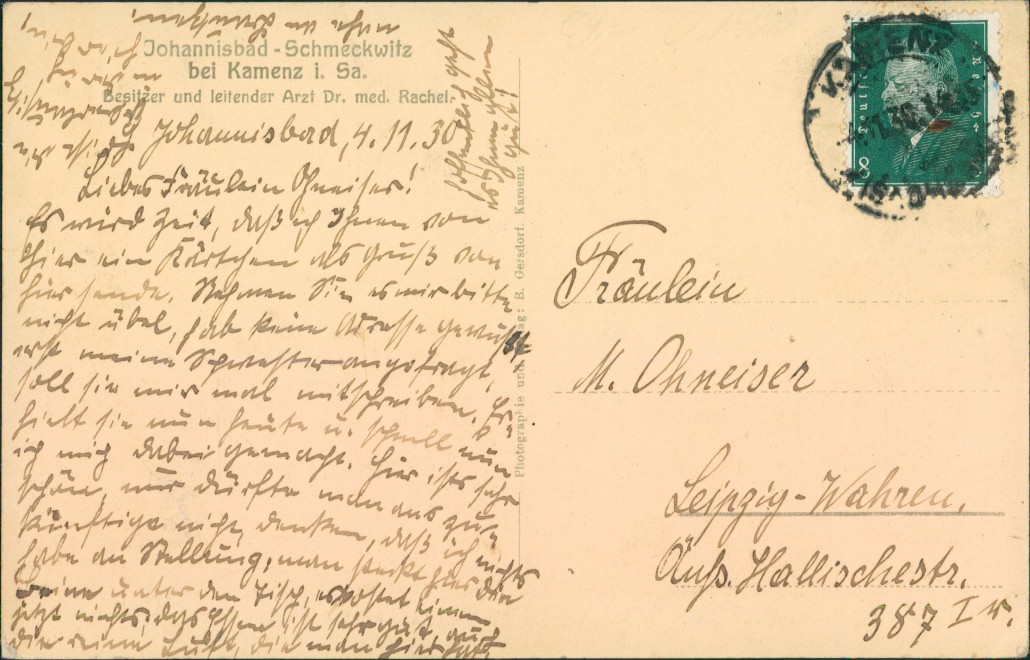 Johannisbad - Schmeckwitz
bei Kamenz i. Sa.
Besitzer und leitender Arzt Dr. med. Rachel.
Johannisbad, 4.11.30
Liebes Fräulein Ohneiser!
Es wird Zeit, daß ich Ihnen von
hier ein Kärtchen als Gruß von
hier sende. Nehmen Sie es mir bitte
nicht übel, hab keine Adresse gewußt,
erst meine Schwester angefragt,
soll sie mir mal mitschreiben. Er-
hielt sie nun heute u. schnell
ich mich dabei gemacht. Hier ists sehr
schön, nur dürfte man ans Zu-
künftige nicht denken, daß ich nichts
habe an Stellung, man steckt hier die
Beine unter den Tisch, es kostet einem
jetzt nichts, das Essen ist sehr gut, auch
die reine Luft, die man hier hat,
Photographie und Verlag: B. Gersdorf, Kamenz
Fräulein
M. Ohneiser
Leipzig-Wahren.
Äuß. Hallischestr.
387 I r.
KAMENZ
Deutsches Reich
8